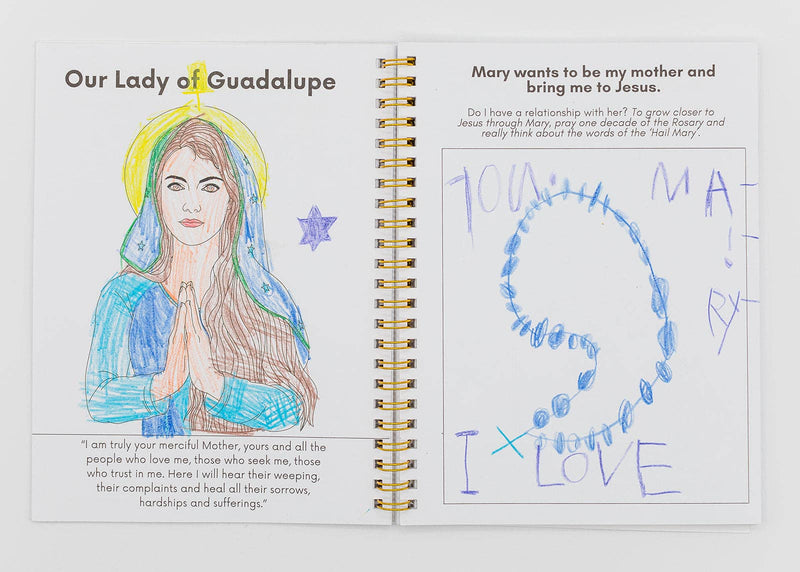 Our Lady of Guadalupe
“I am truly your merciful Mother, yours and all the
people who love me, those who seek me, those
who trust in me. Here I will hear their weeping,
their complaints and heal all their sorrows,
hardships and sufferings.”
Mary wants to be my mother and
bring me to Jesus.
Do I have a relationship with her? To grow closer to
Jesus through Mary, pray one decade of the Rosary and
really think about the words of the ‘Hail Mary’.
YOU. MA-
!
RY
I LOVE